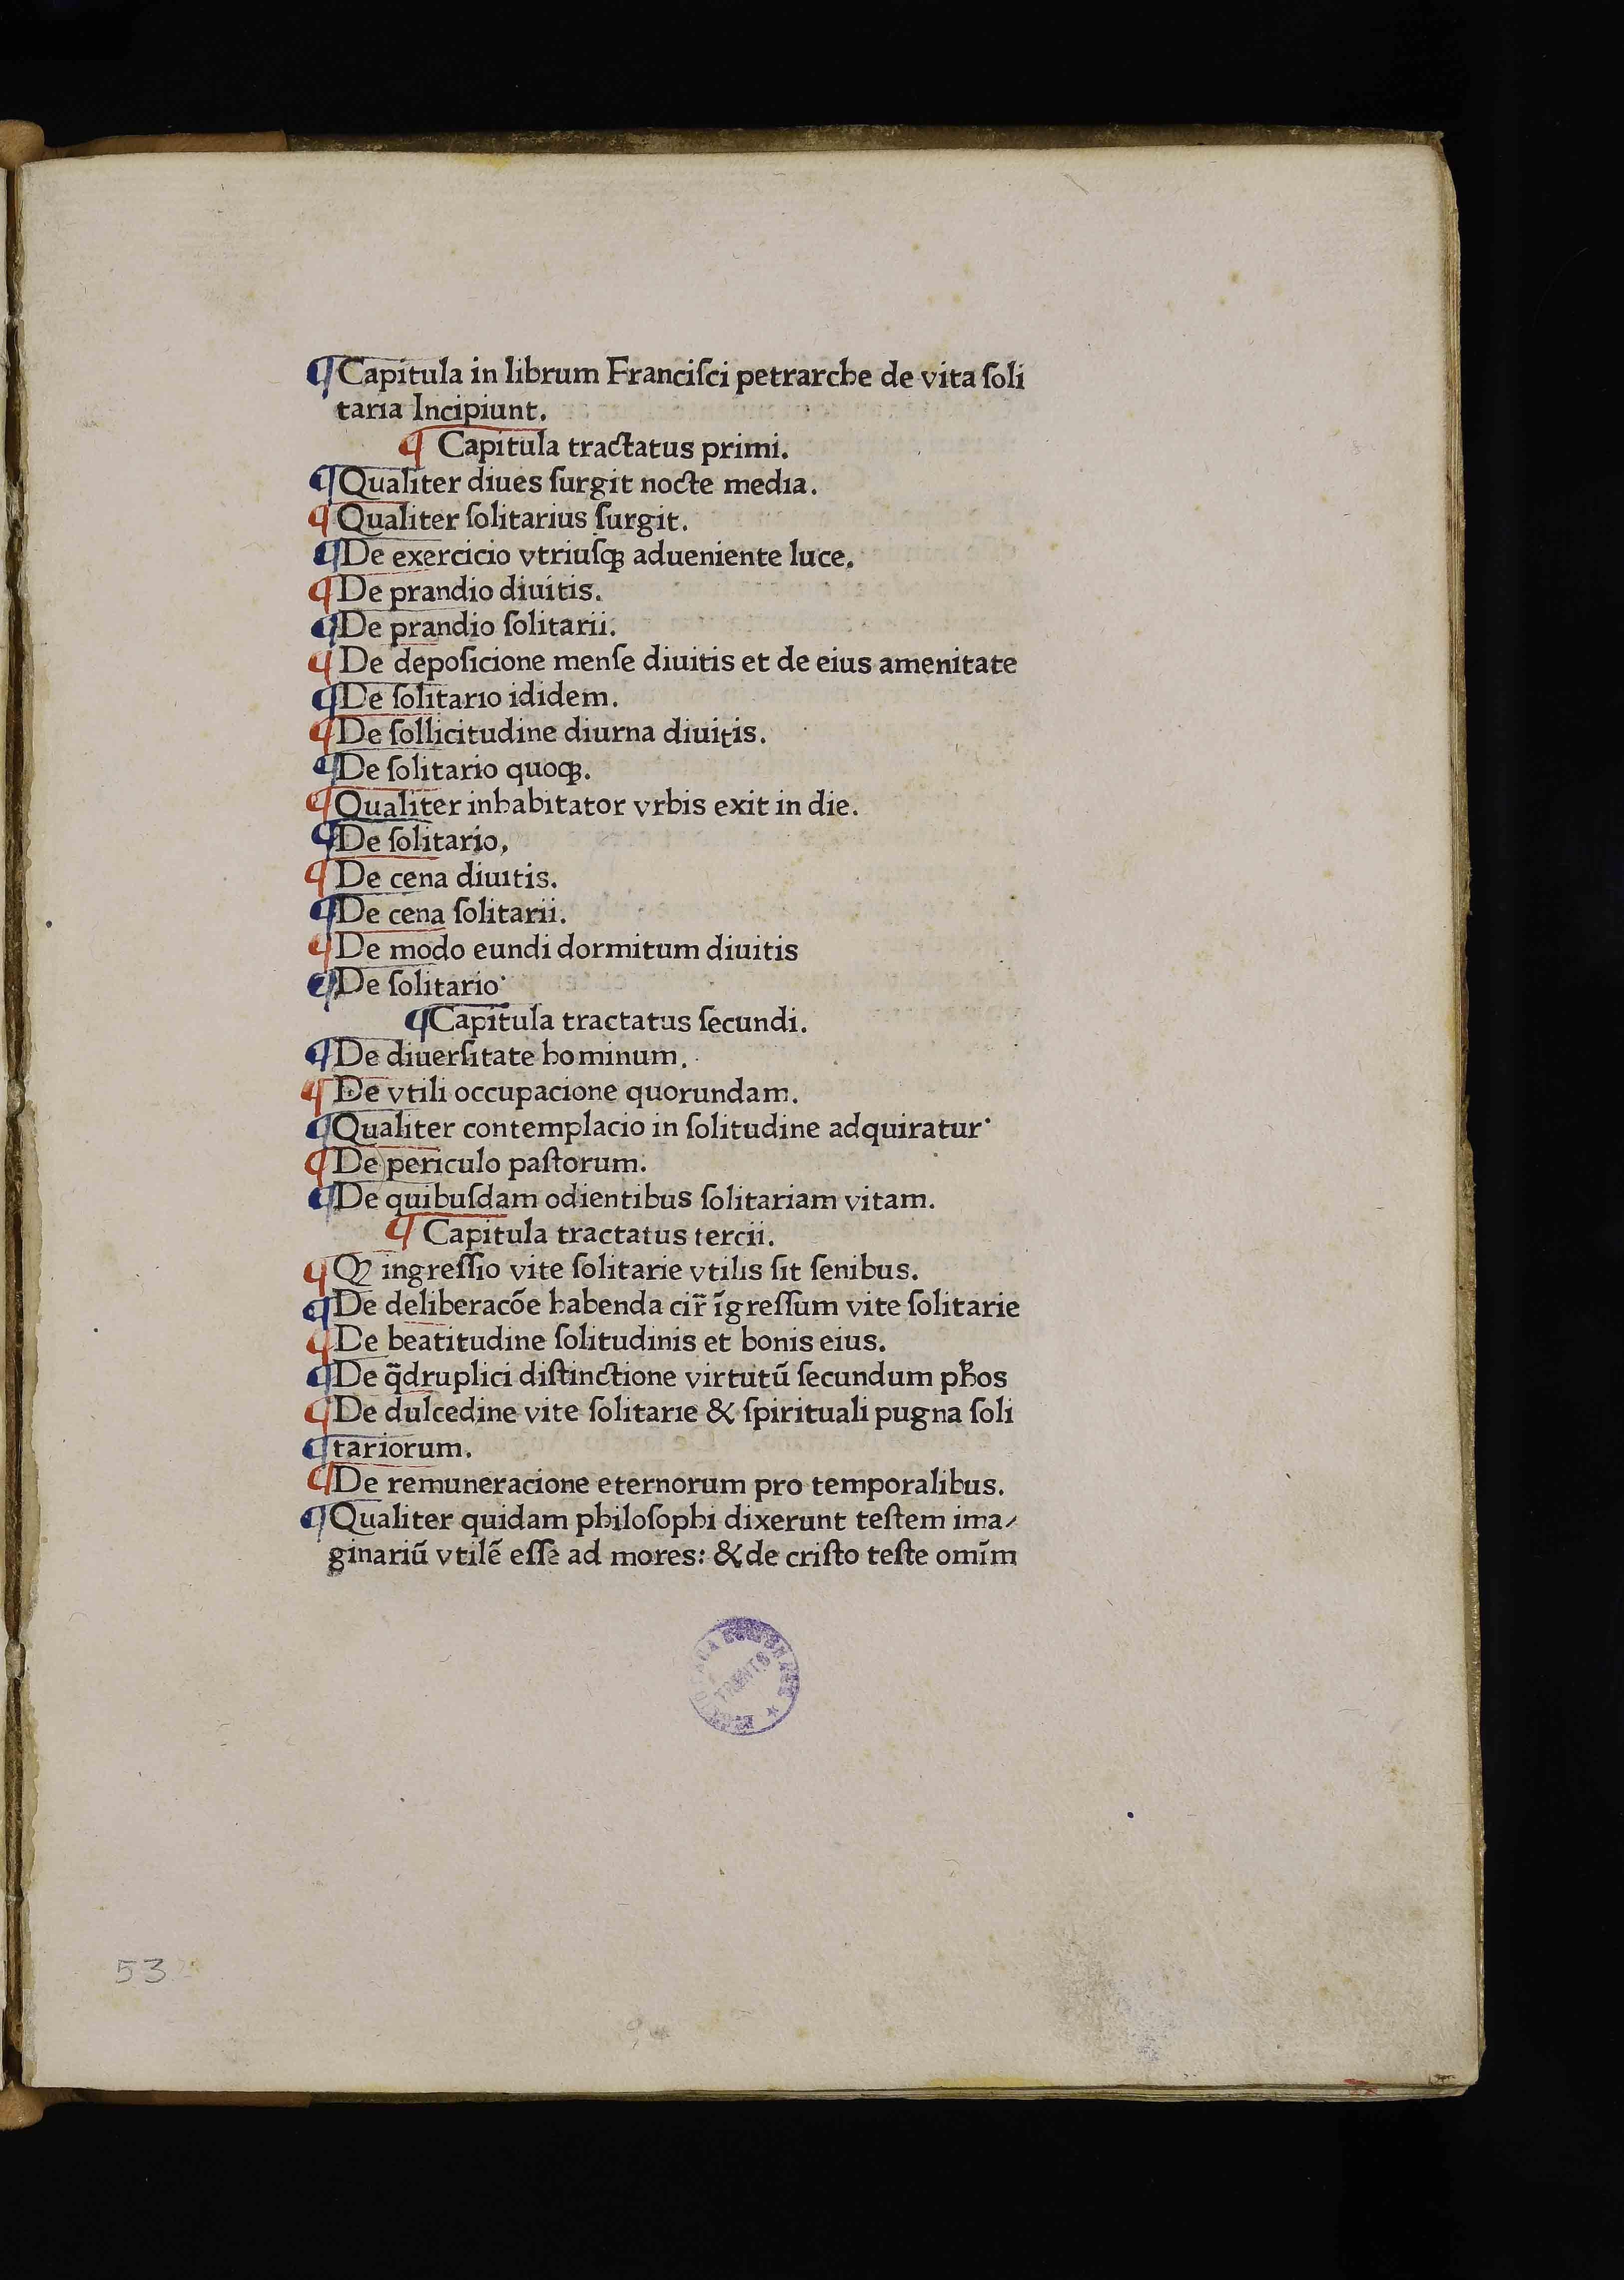 ¶ Capitula in librum Franciſci petrarche de vita ſoli
taria Incipiunt.
¶ Capitula tractatus primi.
¶ Qualiter diues ſurgit nocte media.
¶ Qualiter ſolitarius ſurgit.
¶ De exercicio vtriuſqꝫ adueniente luce.
¶ De prandio diuitis.
¶ De prandio ſolitarii.
¶ De depoſicione menſe diuitis et de eius amenitate
¶ De ſolitario ididem.
¶ De ſollicitudine diurna diuitis.
¶ De ſolitario quoqꝫ.
¶ Qualiter inhabitator vrbis exit in die.
¶ De ſolitario,
¶ De cena diuitis.
¶ De cena ſolitarii.
¶ De modo eundi dormitum diuitis
¶ De ſolitario·
¶ Capitula tractatus ſecundi.
¶ De diuerſitate hominum.
¶ De vtili occupacione quorundam.
¶ Qualiter contemplacio in ſolitudine adquiratur·
¶ De periculo paſtorum.
¶ De quibuſdam odientibus ſolitariam vitam.
¶ Capitula tractatus tercii.
¶ Qꝫ ingreſſio vite ſolitarie vtilis ſit ſenibus.
¶ De deliberacōe habenda cir̄ īgreſſum vite ſolitarie
¶ De beatitudine ſolitudinis et bonis eius.
¶ De q̄druplici diſtinctione virtutū ſecundum pħos
¶ De dulcedine vite ſolitarie & ſpirituali pugna ſoli
¶ tariorum.
¶ De remuneracione eternorum pro temporalibus.
¶ Qualiter quidam philoſophi dixerunt teſtem ima⸗
ginariū vtilē eſſe ad mores: & de criſto teſte omīm
TRENTO
53